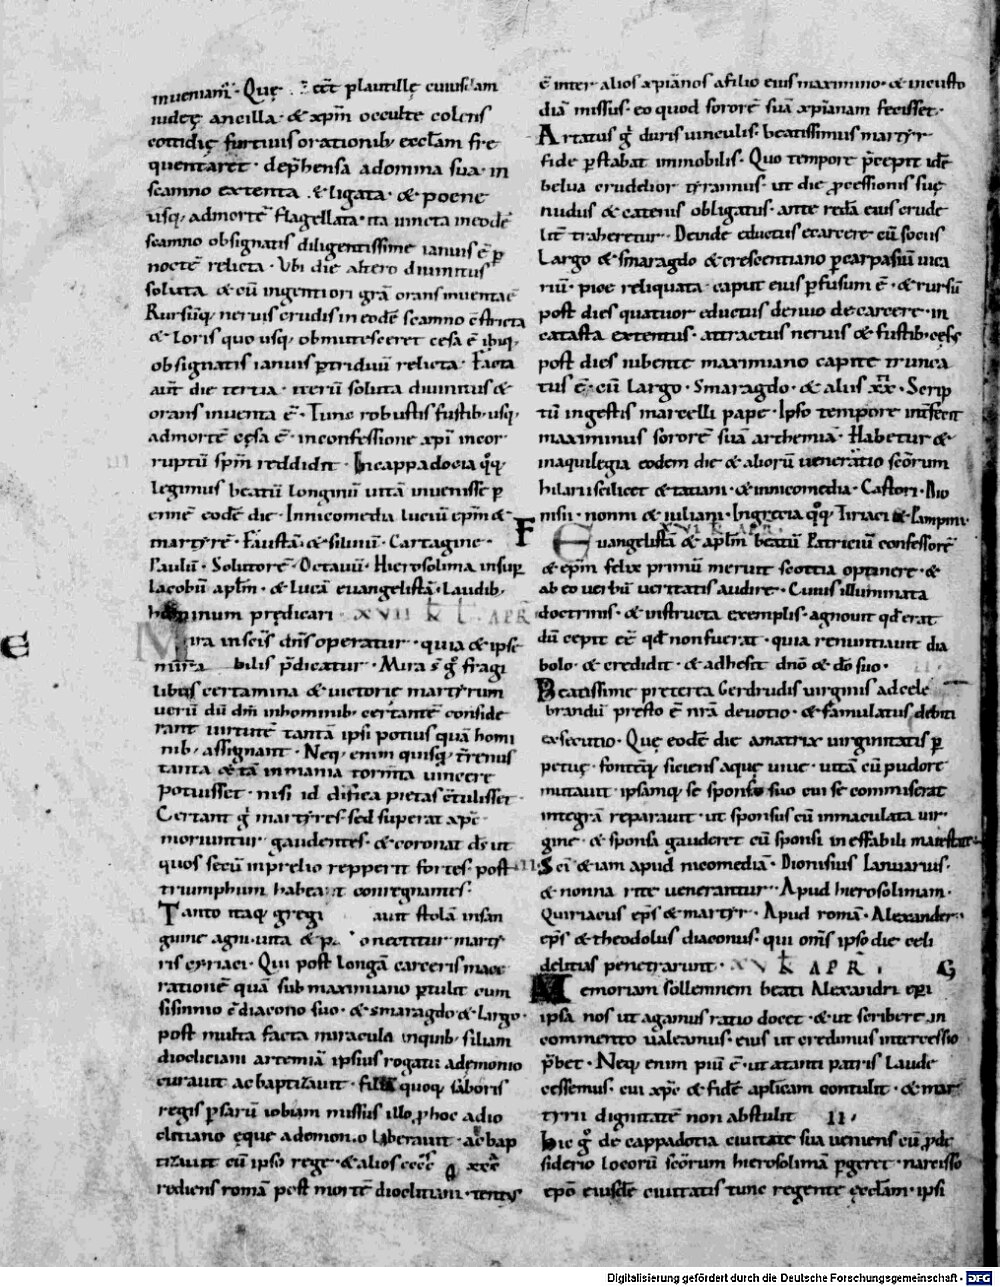 inueniam̅. Quę cc̅t plautillę cuiusdam
iudeę ancilla. & xp̅m occulte colens
cottidię furtiuis orationib; eccl̅am fre
quentaret. dep̅hensa a domina sua. in
scamno extenta & ligata. & poene
usq; ad morte̅ flagellata. ita uincta in eode̅
scamno obsignatis diligentissime ianuis e̅ p̲
nocte̅ relicta. Vbi die altero diuinitus
soluta & cu̅ ingenti ori gr̅a orans inuenta e̅
Rursu̅q; neruis crudis in eode̅ scamno c̅stricta
& loris quo usq; obmutesceret cesa e̅ ibiq;
obsignatis ianuis p̲ triduu̅ relicta. Facta
aut̅ die tertia. iteru̅ soluta diuinitus &
orans inuenta e̅. Tunc robustis fustib; usq;
ad morte̅ cęsa e̅. in confessione xpi̅ incor
ruptu̅ sp̅m reddidit. In cappadocia q̊q;
legimus beatu̅ longinu̅ uita̅ inuenisse p̲
enne̅ eode̅ die. In nicomedia luciu̅ ep̅m &
martyre̅. Fausta̅. & siluiu̅. Cartagine.
Paulu̅. Solutore̅. Octauu̅. Hierosolima insup̲
Iacobu̅ ap̅lm. & luca̅ euangelista̅. Laudib;
hominum prędicari. XVII KL APR̅
Mira in sc̅is dn̅s operatur. quia & ipse
mira bilis p̅dicatur. Mira s̅ g̊ fragi
libus certamina & uictorię martyrum
ueru̅ du̅ dn̅i in hominib; certante̅ conside
rant uirtute̅ tanta̅ ipsi potius qua̅ homi
nib; assignant. Neq; enim quisq; t̅renus
tanta & ta̅ inmania torm̅ta uincere
potuisset. nisi id diuina pietas c̅tulisset.
Certant g̊ martyres. sed superat xpc̅.
moriuntur gaudentes. & coronat ds̅ ut
quos secu̅ in prelio repperit fortes. post
triumphum habeat conregnantes.
Tanto itaq; gregi aut̅ stola̅ in san
guine agni. uita & p onectitur marty
ris cyriaci. Qui post longa̅ carceris mace
ratione̅ qua̅ sub maximiano p̲tulit cum
sisinnio c̅diacono suo. & smaragdo & largo.
post multa facta miracula inquib; filiam
diocliciani artemia̅ ipsius rogatu a demonio
curauit ac baptizauit. filia quoq; saboris
regis p̲saru̅ iobiam missus illo. p̲ hoc a dio
clitiano ęque a demonio liberauit. ac bap
tizauit cu̅ ipso rege. & alios cccc xxx
rediens roma̅ post morte̅ diocliciani. tentus
e̅ inter alios xp̅ianos a filio eius maximino. & in custo
dia̅ missus. eo quod sorore̅ sua̅ xp̅ianam fecisset.
Artatus g̊ duris uinculis. beatissimus martyr
fide p̲stabat immobilis. Quo tempore p̅cepit ide̅
belua crudelior tyrannus. ut die p̲cessionis suę
nudus & catenis obligatus. ante reda̅ eius crude
lit̅ traheretur. Deinde eductus e carcere cu̅ sociis
Largo & smaragdo & crescentiano p̲ carpasiu̅ uica
riu̅. pice reliquata caput eius p̲fusum e̅. & rursu̅
post dies quatuor eductus denuo de carcere. in
catasta extensus. attractus neruis & fustib; cęsus
post dies iubente maximiano capite trunca
tus e̅. cu̅ largo. Smaragdo. & aliis xx. Scrip
tu̅ in gestis marcelli pape. Ipso tempore int̅fecit
maximinus sorore̅ sua̅ arthemia̅. Habetur &
in aquilegia eodem die & alioru̅ ueneratio sc̅orum
hilarii scilicet & tatiani. & in nicomedia. Castori. Dio
nisii. nonni & iuliani. In grecia q̊q; Tiriaci & Pampini.
XVI KL APR̅.
Euangelista̅ & ap̅lm beatu̅ Patriciu̅ confessore̅
& ep̅m felix primu̅ meruit scottia optinere. &
ab eo uerbu̅ ueritatis audire. Cuius illuminata
doctrinis. & instructa exemplis. agnouit qd̅ erat
du̅ cepit ee̅ qd̅ non fuerat. quia renuntiauit dia
bolo. & credidit. & adhesit dn̅o & do̅ suo.
Beatissime preterea Gerdrudis uirginis ad cele
brandu̅ presto e̅ nr̅a deuotio. & famulatus debiti
exsecutio. Quę eode̅ die amatrix uirginitatis p̲
petuę. fonte̅q; siciens aquę uiue. uita̅ cu̅ pudore
mutauit. ipsamq; se sponso suo cui se commiserat
integra̅ reparauit. ut sponsus cu̅ immaculata uir
gine. & sponsa gauderet cu̅ sponsi ineffabili maiestate.
Sci̅ & iam apud nicomedia̅. Dionisius. Ianuarius.
& nonna rite uenerantur. Apud hierosolimam.
Quiriacus ep̅s & martyr. Apud roma̅. Alexander
ep̅s & theodolus diaconus. qui om̅s ipso die celi
delitias penetrarunt. XV K APR̅.
Memoriam sollemnem beati Alexandri ep̅i
ipsa nos ut agamus ratio docet. & ut scribere in
commento ualeamus. eius ut credimus intercessio
p̅bet. Neq; enim piu̅ e̅. ut a tanti patris laude
cessemus. cui xpc̅ & fide̅ ap̅licam contulit. & mar
tyrii dignitate̅ non abstulit II.
Hic g̊ de cappadotia ciuitate sua ueniens cu̅ p̲ de
siderio locoru̅ sc̅orum hierosolima̅ p̲geret. narcisso
ep̅o eiusde̅ ciuitatis tunc regente ęccl̅am. ipsi